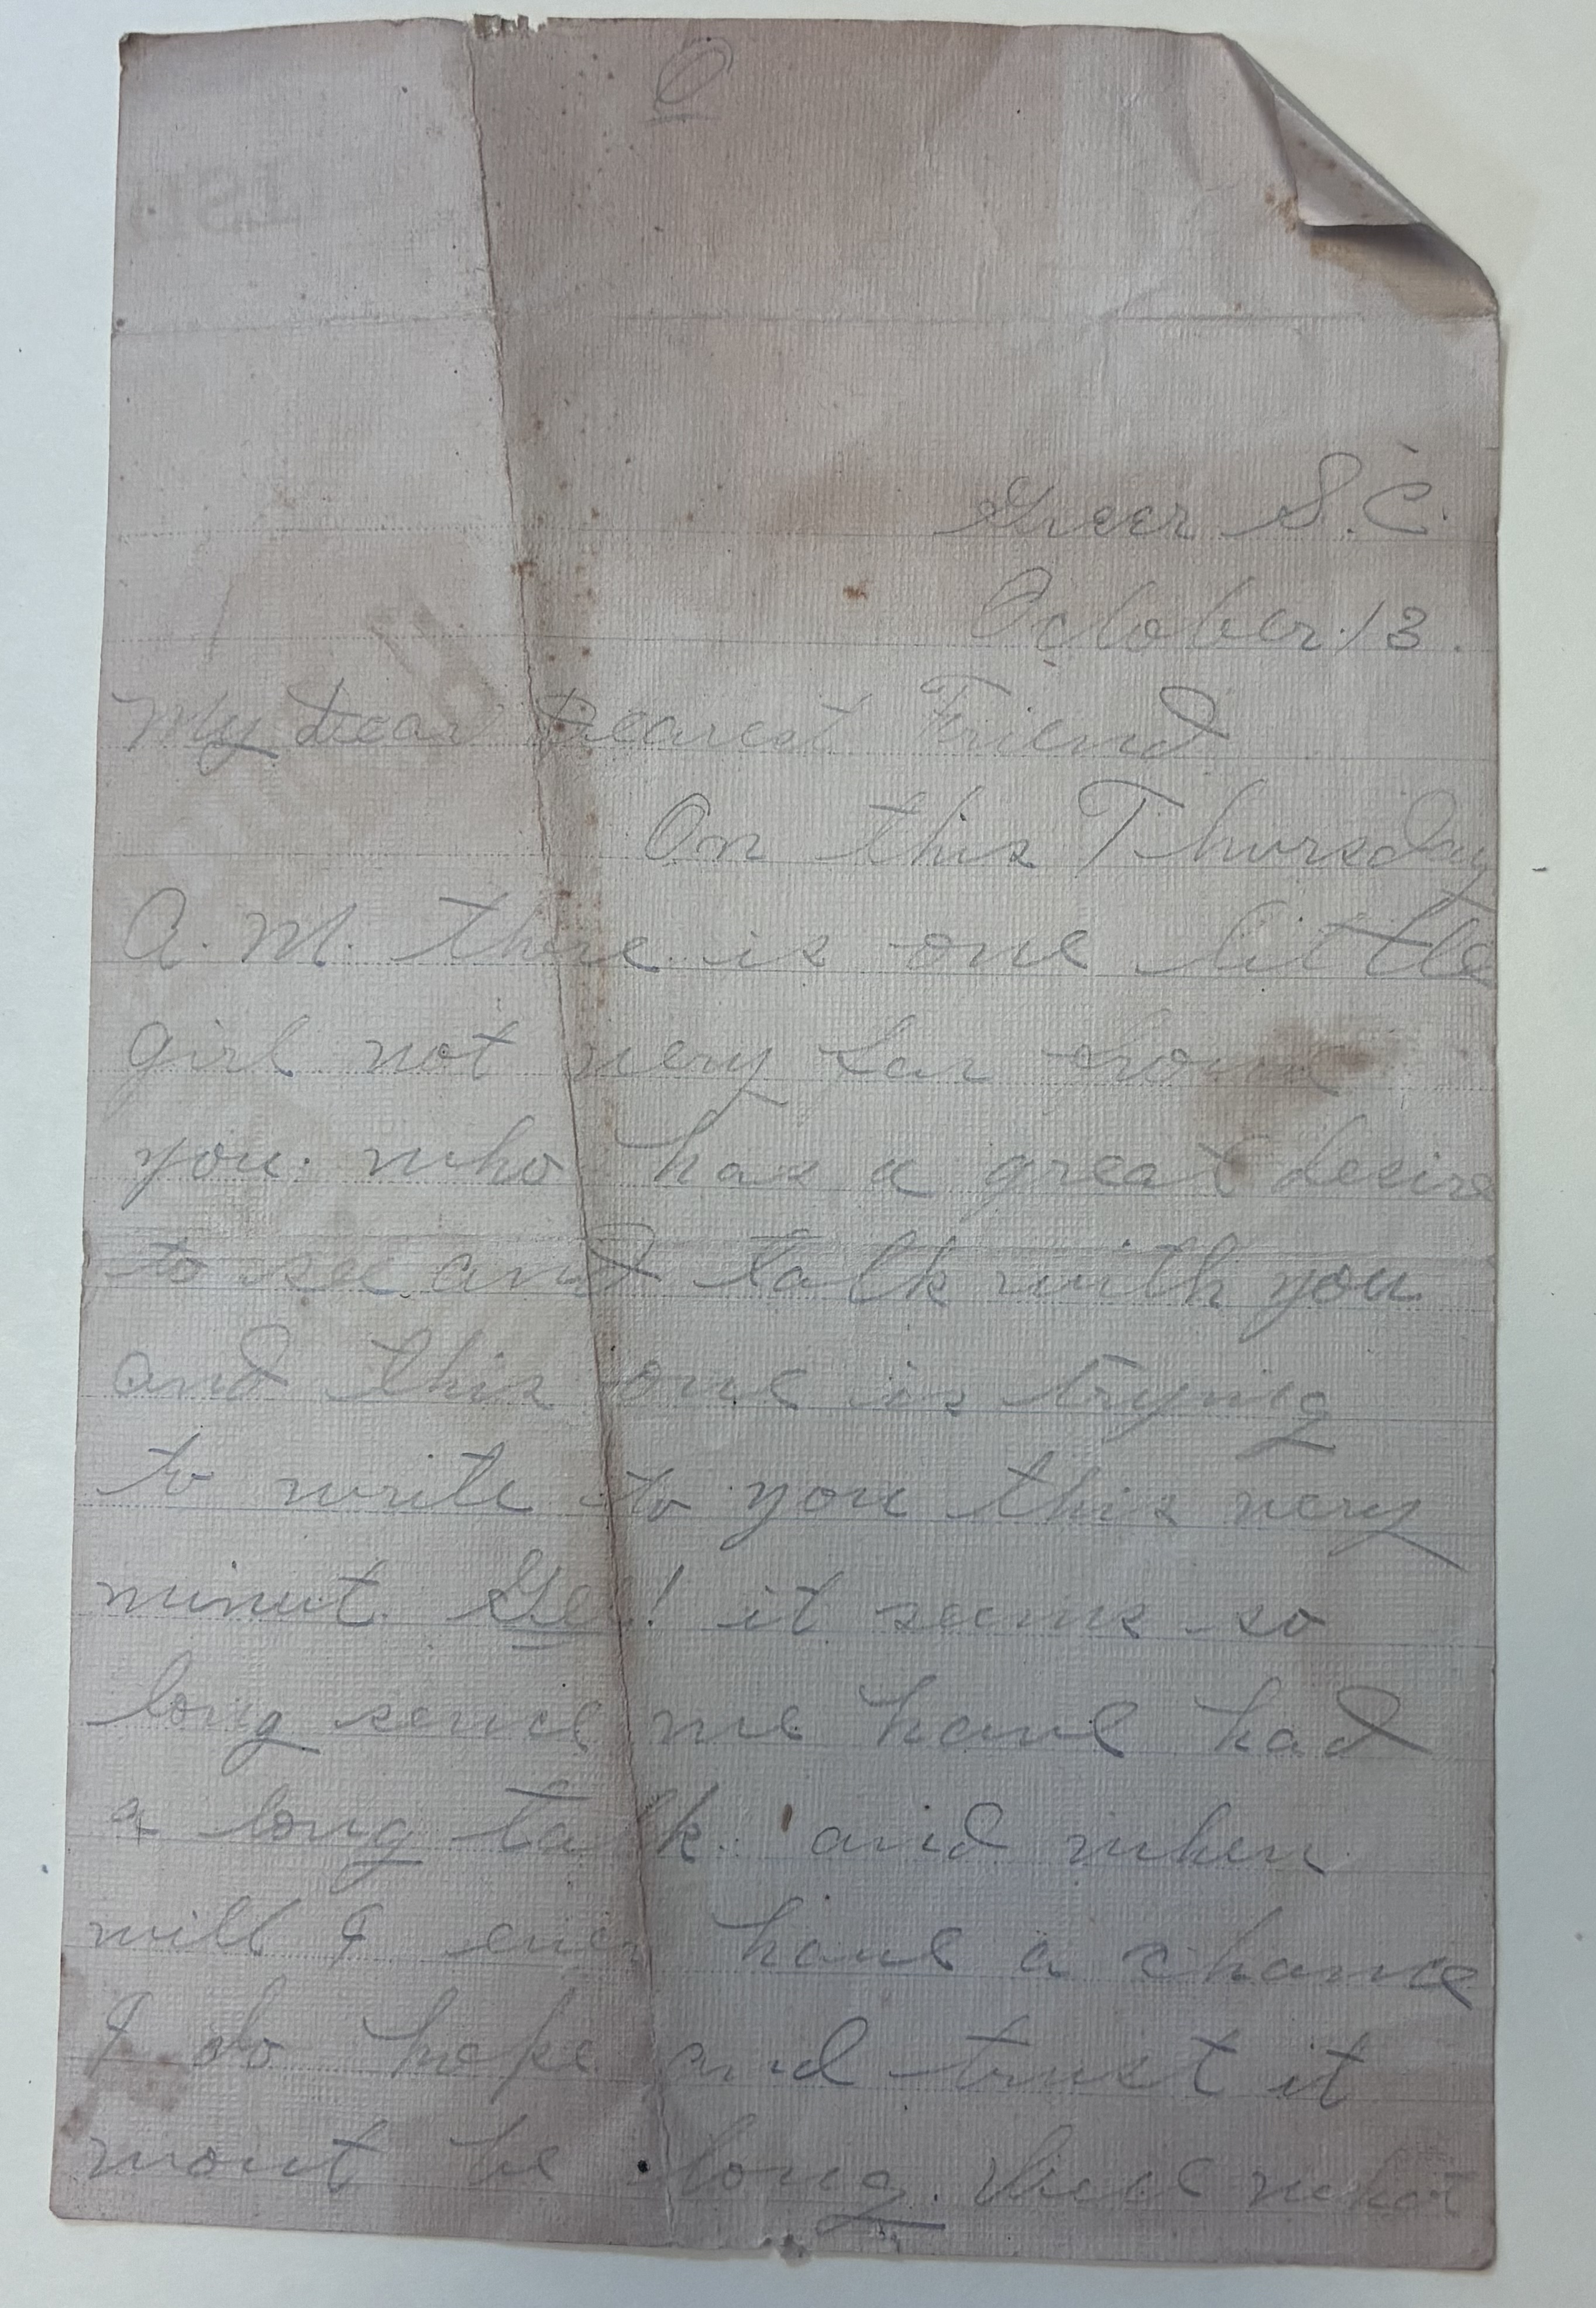 Greer S.C.
October 13.
My Dear Dearest Friend
On this Thursday
A.M. there is one little
girl not very far from
you. who has a great desire
to see and talk with you
and this one is trying
to write to you this very
minut. Ge! it seems so
long sence we have had
a long talk. and when
will I ever have a chance
I do hope and trust it
wont be long. Well what